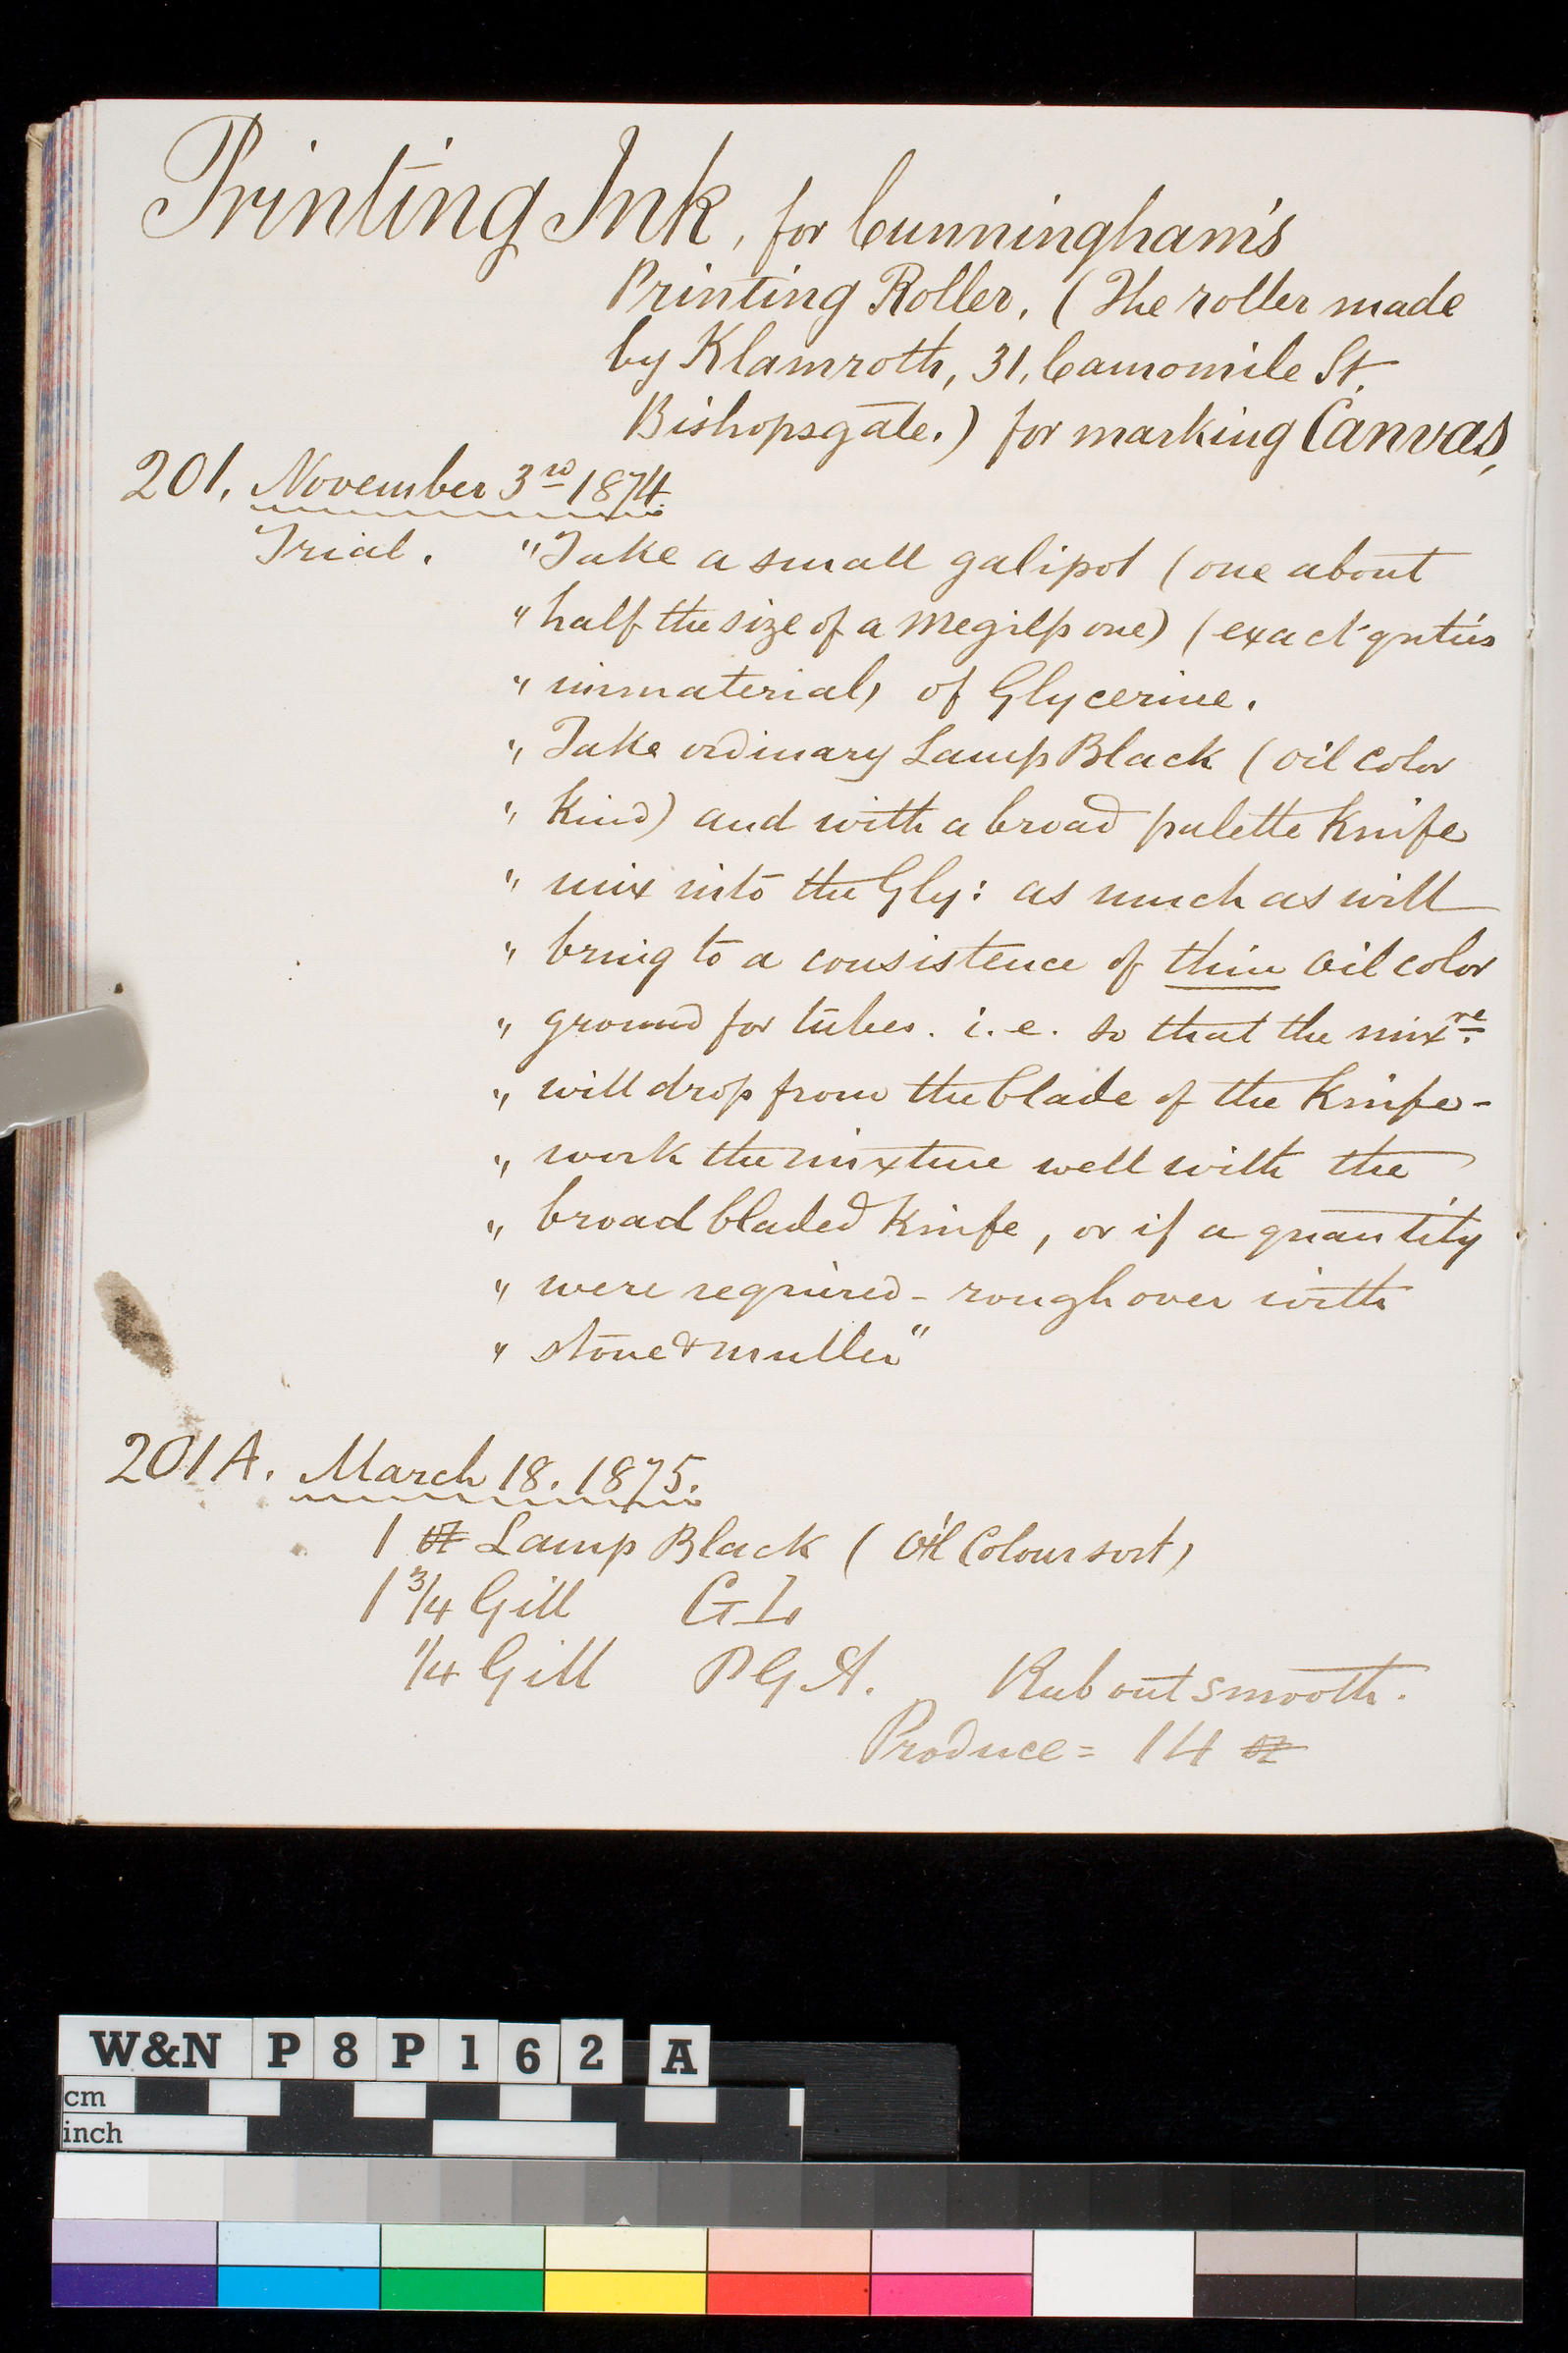 Printing Ink, for Cunningham's
Printing Roller. (The roller made
by Klamroth, 31, Camomile St.
Bishopsgate.) for marking Canvas,
201. November 3rd 1874.
Trial. "Take a small galipot (one about
" half the size of a Megilp one) (exact qnties
" immaterial) of Glycerine.
" Take ordinary Lamp Black (oil color
" kind) and with a broad palette knife
" mix into the Gly: as much as will
" bring to a consistence of thin oil color
" ground for tubes. i.e. so that the mixre.
" will drop from the blade of the knife -
" work the mixture well with the
" broad bladed knife, or if a quantity
" were required - rough over with
" stone & muller"
201A. March 18. 1875.
1 Lamp Black (Oil Colour sort)
1 3/4 Gill GL
1/4 Gill P G A. Rub out smooth.
Produce = 14
W&N P8P162 A
cm
inch